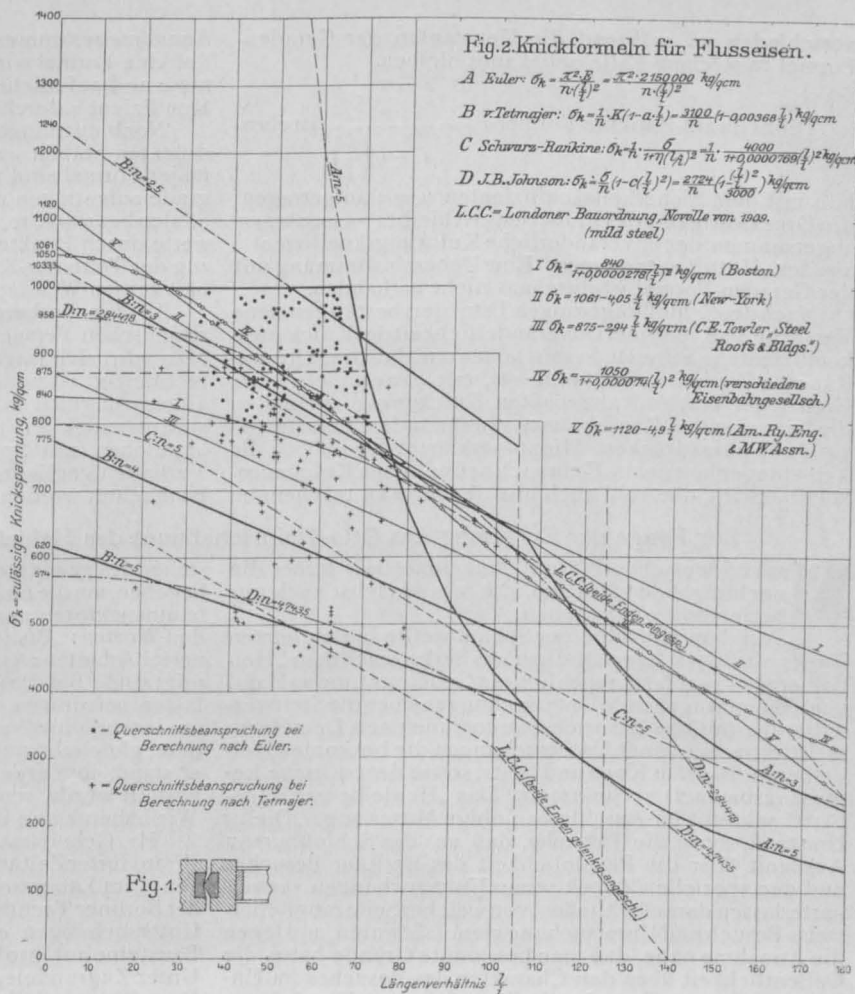 Fig.2. Knickformeln für Flusseisen.
A Euler: σk = π²·E / n·(l/i)² = π²·2150000 / n·(l/i)² kg/qcm
B v. Tetmajer: σk = 1/n · K(1-a· l/i) = 3100/n (1-0,00368 l/i) kg/qcm
C Schwarz-Rankine: σk = 1/n · σ / 1+η(l/i)² = 1/n · 4000 / 1+0,0000769(l/i)² kg/qcm
D J.B. Johnson: σk = σ/n (1-c(l/i)²) = 2724/n (1- (l/i)²/3000) kg/qcm
L.C.C. = Londoner Bauordnung, Novolle von 1909.
(mild steel)
I σk = 840 / 1+0,0000278(l/i)² kg/qcm (Boston)
II σk = 1061-4,05 l/i kg/qcm (New-York)
III σk = 875-2,94 l/i kg/qcm (C.E. Towler, „Steel
Roofs & Bldgs.")
IV σk = 1050 / 1+0,000074(l/i)² kg/qcm (verschiedene
Eisenbahngesellsch.)
V σk = 1120-4,9 l/i kg/qcm (Am. Ry. Eng.
& M.W. Assn.)
1400
1300
1240
1200
1120
1100
1061
1050
1033,3
1000
958
900
875
840
800
775
700
620
600
574
500
400
300
200
100
0
σk = zulässige Knickspannung, kg/qcm
A:n=5
B:n=2,5
V
B:n=3
II
IV
D:n=2,84418
I
III
C:n=5
B:n=4
B:n=5
D:n=4,7435
L.C.C. (beide Enden eingesp.)
I
II
III
C:n=5
V
IV
A:n=3
D:n=2,84418
A:n=5
D:n=4,7435
L.C.C. (beide Enden gelenkig angeschl.)
• = Querschnittsbeanspruchung bei
Berechnung nach Euler.
+ = Querschnittsbeanspruchung bei
Berechnung nach Tetmajer.
Fig.1.
0 10 20 30 40 50 60 70 80 90 100 110 120 130 140 150 160 170 180
Längenverhältnis l/i